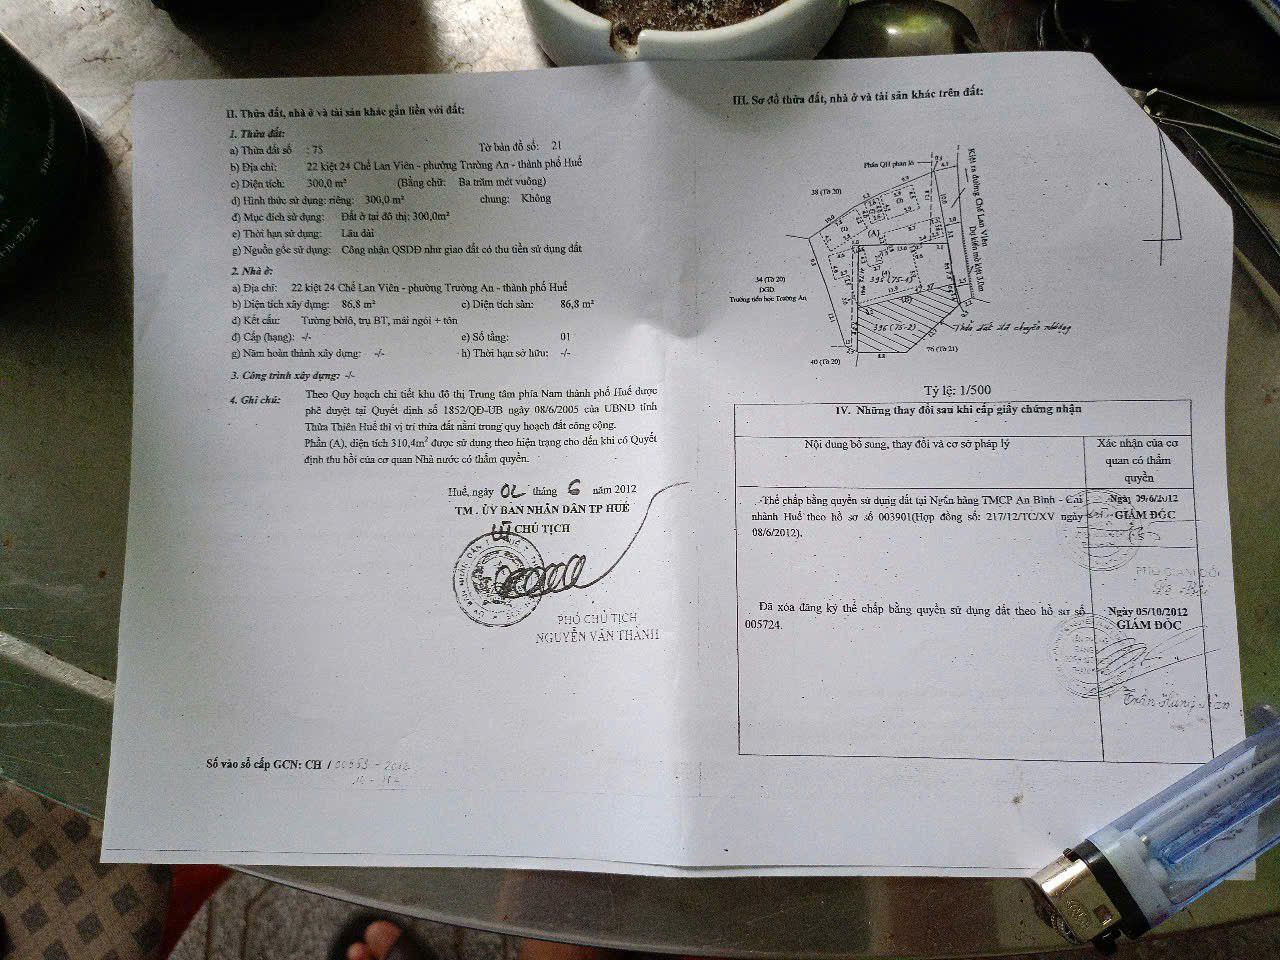 II. Thửa đất, nhà ở và tài sản khác gắn liền với đất:
1. Thửa đất:
a) Thửa đất số : 75 Tờ bản đồ số: 21
b) Địa chỉ: 22 kiệt 24 Chế Lan Viên - phường Trường An - thành phố Huế
c) Diện tích: 300,0 m² (Bằng chữ: Ba trăm mét vuông)
d) Hình thức sử dụng: riêng: 300,0 m² chung: Không
đ) Mục đích sử dụng: Đất ở tại đô thị: 300,0m²
e) Thời hạn sử dụng: Lâu dài
g) Nguồn gốc sử dụng: Công nhận QSDĐ như giao đất có thu tiền sử dụng đất
2. Nhà ở:
a) Địa chỉ: 22 kiệt 24 Chế Lan Viên - phường Trường An - thành phố Huế
b) Diện tích xây dựng: 86,8 m² c) Diện tích sàn: 86,8 m²
d) Kết cấu: Tường bờlô, trụ BT, mái ngói + tôn
đ) Cấp (hạng): -/- e) Số tầng: 01
g) Năm hoàn thành xây dựng: -/- h) Thời hạn sở hữu: -/-
3. Công trình xây dựng: -/-
4. Ghi chú: Theo Quy hoạch chi tiết khu đô thị Trung tâm phía Nam thành phố Huế được
phê duyệt tại Quyết định số 1852/QĐ-UB ngày 08/6/2005 của UBND tỉnh
Thừa Thiên Huế thì vị trí thửa đất nằm trong quy hoạch đất công cộng.
Phần (A), diện tích 310,4m² được sử dụng theo hiện trạng cho đến khi có Quyết
định thu hồi của cơ quan Nhà nước có thẩm quyền.
Huế, ngày 02 tháng 6 năm 2012
TM . ỦY BAN NHÂN DÂN TP HUẾ
CHỦ TỊCH
PHÓ CHỦ TỊCH
NGUYỄN VĂN THÀNH
Số vào sổ cấp GCN: CH /
III. Sơ đồ thửa đất, nhà ở và tài sản khác trên đất:
Phần QH phân lô
38 (Tờ 20)
Kiệt ra đường Chế Lan Viên
Dự kiến mở kiệt
(A)
34 (Tờ 20)
DGD
Trường tiểu học Trường An
395 (75-1)
(B)
396 (75-2)
Thửa đất đã chuyển nhượng
40 (Tờ 20)
76 (Tờ 21)
Tỷ lệ: 1/500
IV. Những thay đổi sau khi cấp giấy chứng nhận
Nội dung bổ sung, thay đổi và cơ sở pháp lý
Xác nhận của cơ
quan có thẩm
quyền
Thế chấp bằng quyền sử dụng đất tại Ngân hàng TMCP An Bình - Chi
nhánh Huế theo hồ sơ số 003901(Hợp đồng số: 217/12/TC/XV ngày
08/6/2012).
GIÁM ĐỐC
PHÓ GIÁM ĐỐC
Đã xóa đăng ký thế chấp bằng quyền sử dụng đất theo hồ sơ số
005724.
Ngày 05/10/2012
GIÁM ĐỐC
Trần Hùng